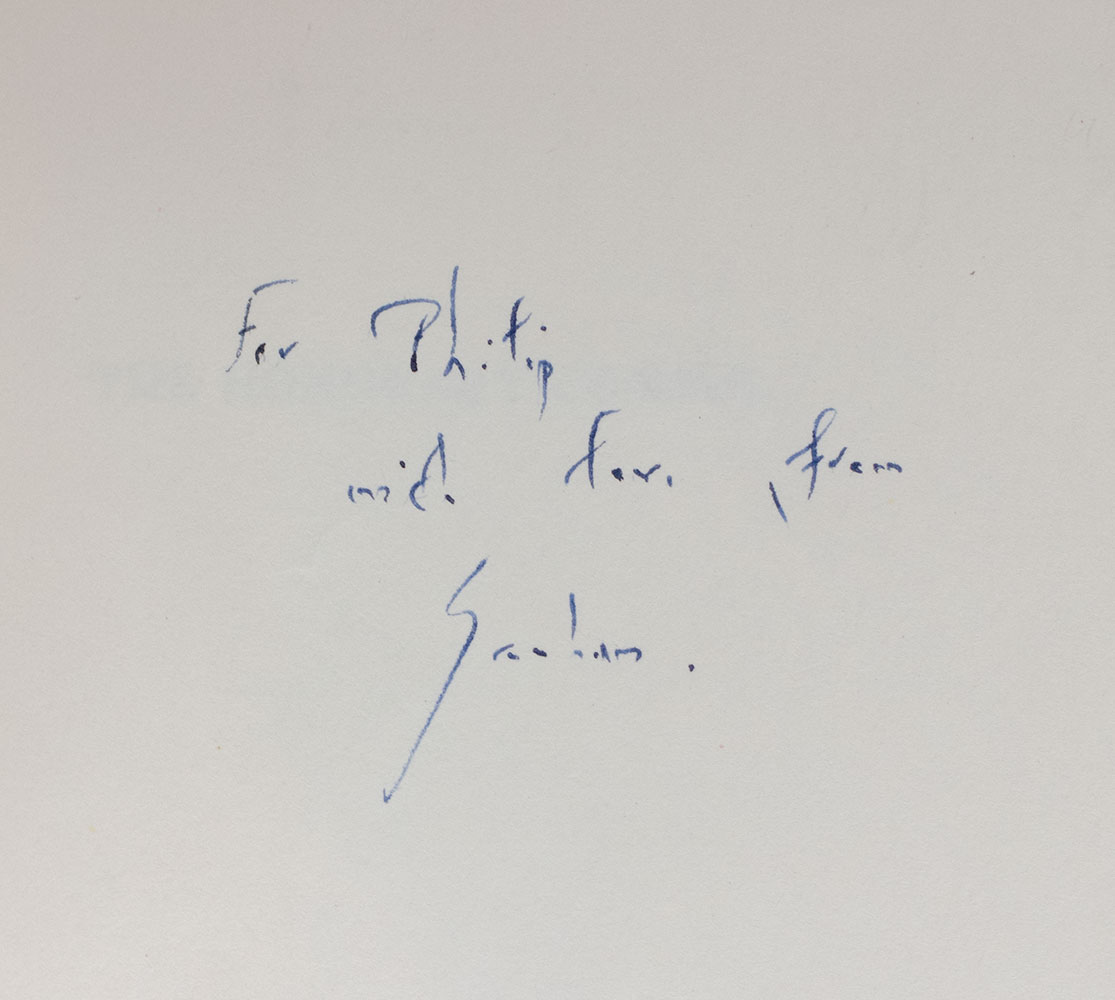 For Philip
with love from
Graham.